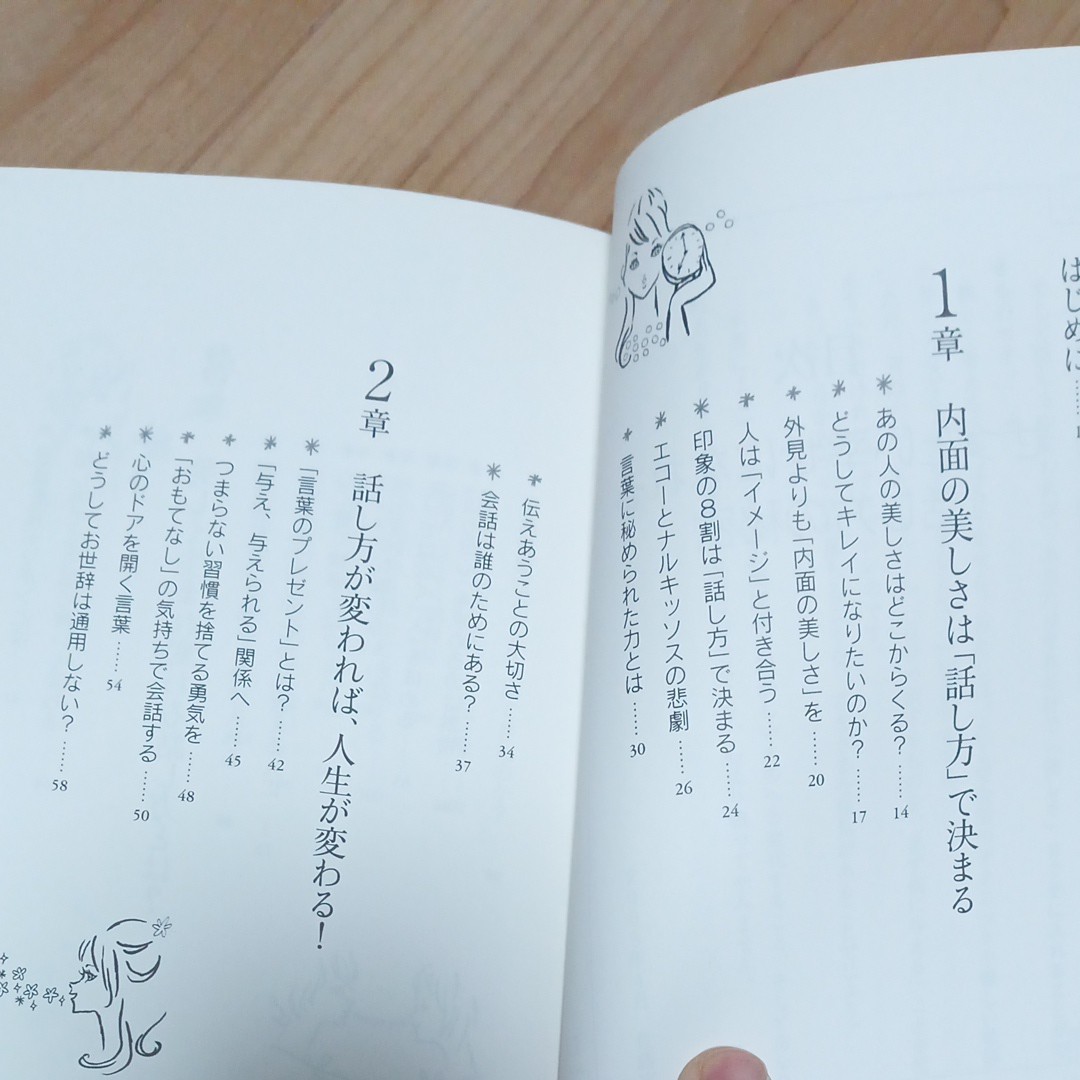 はじめに……
1章 内面の美しさは「話し方」で決まる
＊ あの人の美しさはどこからくる？……14
＊ どうしてキレイになりたいのか？……17
＊ 外見よりも「内面の美しさ」を……20
＊ 人は「イメージ」と付き合う……22
＊ 印象の8割は「話し方」で決まる……24
＊ エコーとナルキッソスの悲劇……26
＊ 言葉に秘められた力とは……30
＊ 伝えあうことの大切さ……34
＊ 会話は誰のためにある？……37
2章 話し方が変われば、人生が変わる！
＊ 「言葉のプレゼント」とは？……42
＊ 「与え、与えられる」関係へ……45
＊ つまらない習慣を捨てる勇気を……48
＊ 「おもてなし」の気持ちで会話する……50
＊ 心のドアを開く言葉……54
＊ どうしてお世辞は通用しない？……58